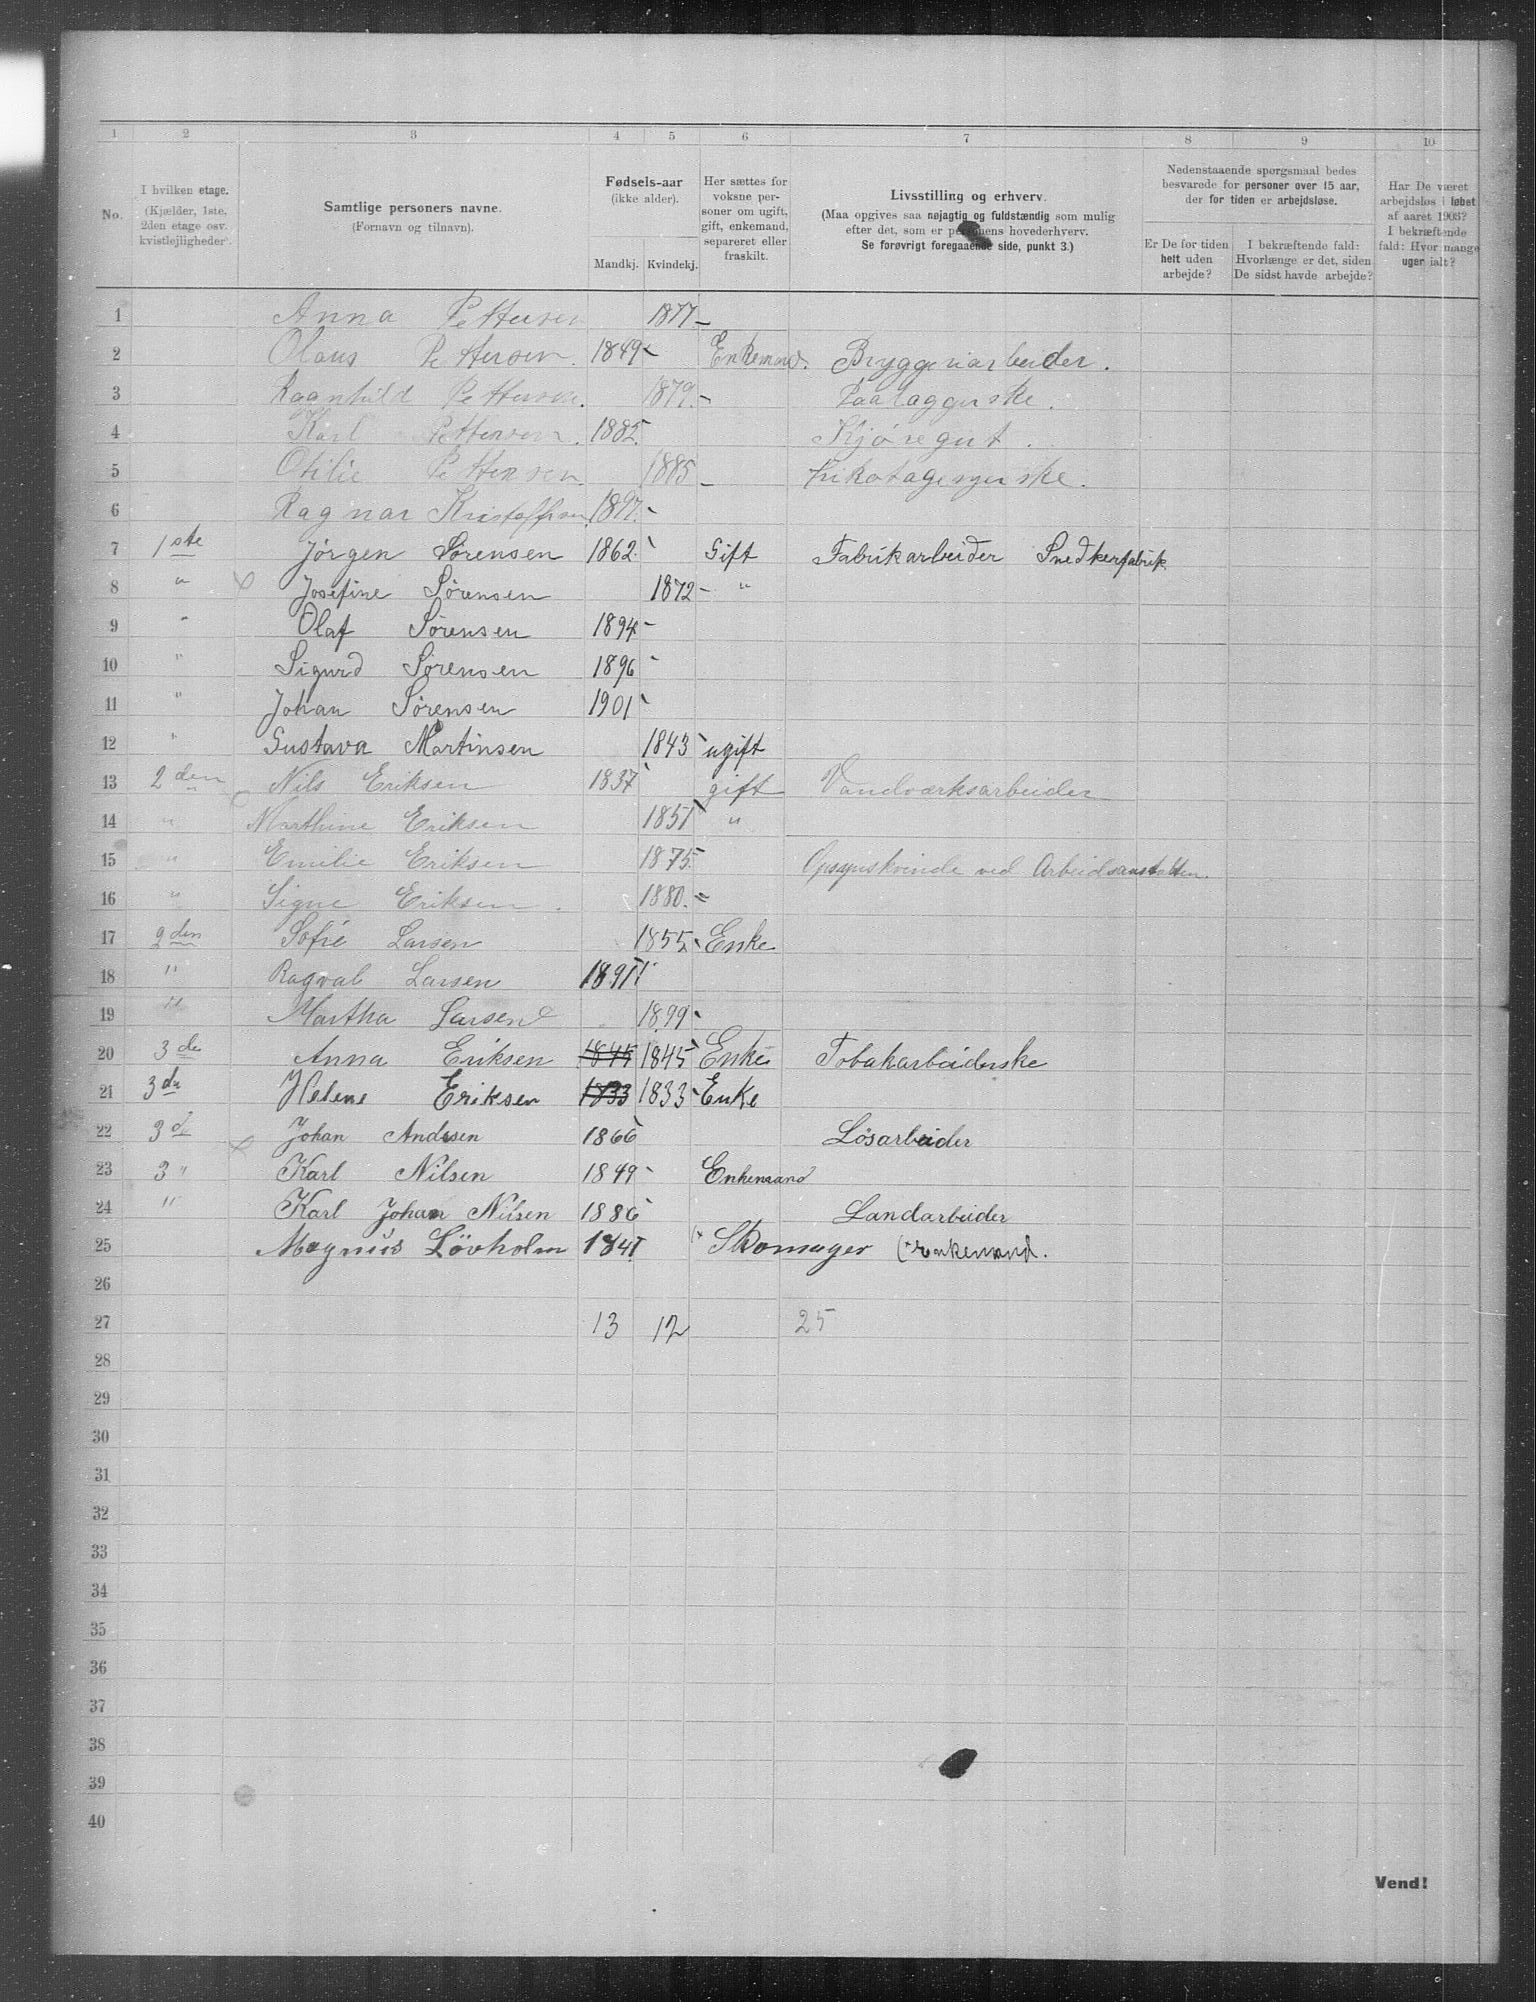 1 2 3 4 5 6 7 8 9 10
No.
I hvilken etage.
(Kjælder, 1ste,
2den etage osv.
kvistlejligheder).
Samtlige personers navne.
(Fornavn og tilnavn).
Fødsels-aar
(ikke alder).
Mandkj. Kvindekj.
Her sættes for
voksne per-
soner om ugift,
gift, enkemand,
separeret eller
fraskilt.
Livsstilling og erhverv.
(Maa opgives saa nøjagtig og fuldstændig som mulig
efter det, som er personens hovederhverv.
Se forøvrigt foregaaende side, punkt 3.)
Nedenstaaende spørgsmaal bedes
besvarede for personer over 15 aar,
der for tiden er arbejdsløse.
Er De for tiden
helt uden
arbejde?
I bekræftende fald:
Hvorlænge er det, siden
De sidst havde arbejde?
Har De været
arbejdsløs i løbet
af aaret 1903?
I bekræftende
fald: Hvor mange
uger ialt?
1 Anna Pettersen 1877 –
2 Olaus Pettersen. 1849 – Enkemand. Bryggeriarbeider.
3 Ragnhild Pettersen. 1879. – Paalæggerske.
4 Karl Pettersen. 1882. Kjøregut.
5 Otilie Pettersen. 1885 – Trikotagesyerske.
6 Ragnar Kristoffersen 1897. –
7 1ste Jørgen Sørensen 1862. Gift Fabrikarbeider Snedkerfabrik
8 " Josefine Sørensen 1872 – "
9 " Olaf Sørensen 1894 –
10 " Sigurd Sørensen 1896
11 " Johan Sørensen 1901
12 " Gustava Martinsen 1843 ugift
13 2den Nils Eriksen 1837 gift Vandværksarbeider
14 " Marthine Eriksen 1851 "
15 " Emilie Eriksen 1875 Opsynskvinde ved Arbeidsanstalten.
16 " Signe Eriksen. 1880. –
17 2den Sofie Larsen 1855 Enke
18 " Ragval Larsen 1891
19 " Martha Larsen 1899
20 3de Anna Eriksen 1845 1845 Enke Tobakarbeiderske
21 3de Helene Eriksen 1833 1833 Enke
22 3d Johan Andersen 1866 Løsarbeider
23 3 " Karl Nilsen 1849 – Enkemand
24 " Karl Johan Nilsen 1886 Landarbeider
25 Magnus Lövholm 1841 (* Skomager (* enkemand.
26
27 13 12 25
28
29
30
31
32
33
34
35
36
37
38
39
40
Vend!